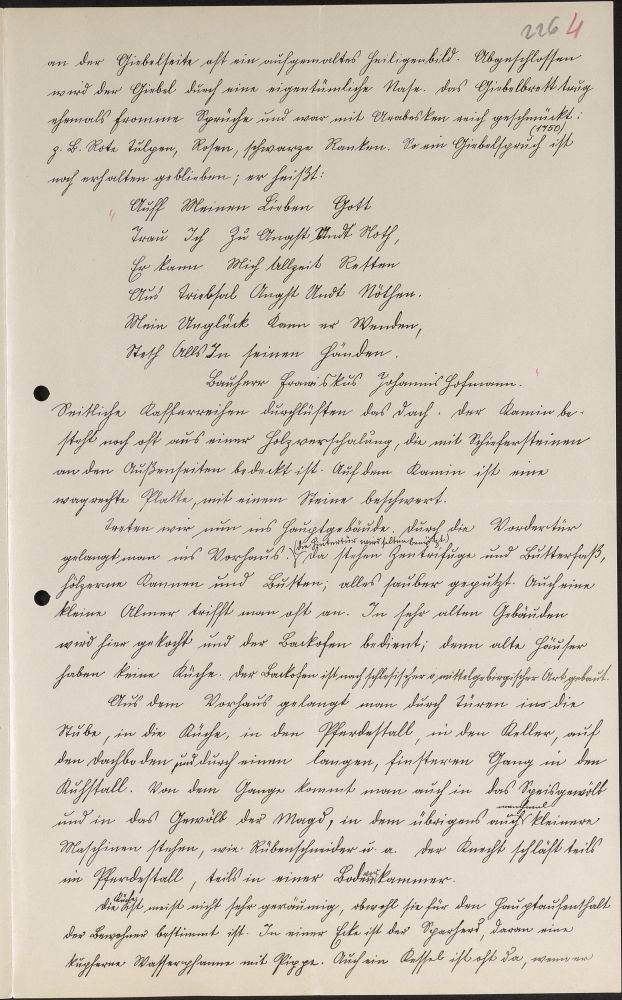 226 4
an der Giebelseite oft ein aufgemaltes Heiligenbild. Abgeschlossen
wird der Giebel durch eine eigentümliche Nase. Das Giebelbrett trug
ehemals fromme Sprüche und war mit Arabesken reich geschmückt:
z. B. Rote Tülpen, Rosen, schwarze Ranken. So ein Giebelspruch (1750) ist
noch erhalten geblieben; er heißt:
Auff Meinen Lieben Gott
Trau Ich Zu Angst Undt Noth,
Er kann Mich Allzeit Retten
Aus Triebsal Angst Undt Nöthen.
Mein Unglück Kann er Wenden,
Steth Alls In seinen Händen.
Bauherr Franciskus Johannis Hofmann.
Seitliche Kafferreihen durchlüften das Dach. Der Kamin be-
steht noch oft aus einer Holzverschalung, die mit Schiefersteinen
an den Außenseiten bedeckt ist. Auf dem Kamin ist eine
wagrechte Platte, mit einem Steine beschwert.
Treten wir nun ins Hauptgebäude. Durch die Vordertür
(die Hintertür wird selten benützt)
gelangt man ins Vorhaus. Da stehen Zentrifuge und Butterfaß,
hölzerne Kannen und Butten; alles sauber geputzt. Auch eine
kleine Almer trifft man oft an. In sehr alten Gebäuden
wird hier gekocht und der Backofen bedient; denn alte Häuser
haben keine Küche. Der Backofen ist nach schlesischer o. mittelgebirgischer Art gebaut.
Aus dem Vorhaus gelangt man durch Türen in die
Stube, in die Küche, in den Pferdestall, in den Keller, auf
den Dachboden und durch einen langen, finsteren Gang in den
Kuhstall. Von dem Gange kommt man auch in das Speisgewölb
und in das Gewölb der Magd, in dem übrigens auch manchmal kleinere
Maschinen stehen, wie Rübenschneider u. a. Der Knecht schläft teils
im Pferdestall, teils in einer Bodenkammer.
Die Küche ist meist nicht sehr geräumig, obwohl sie für den Hauptaufenthalt
der Bewohner bestimmt ist. In einer Ecke ist der Sparherd, daran eine
kupferne Wasserpfanne mit Pippe. Auch ein Kessel ist oft da, wenn er